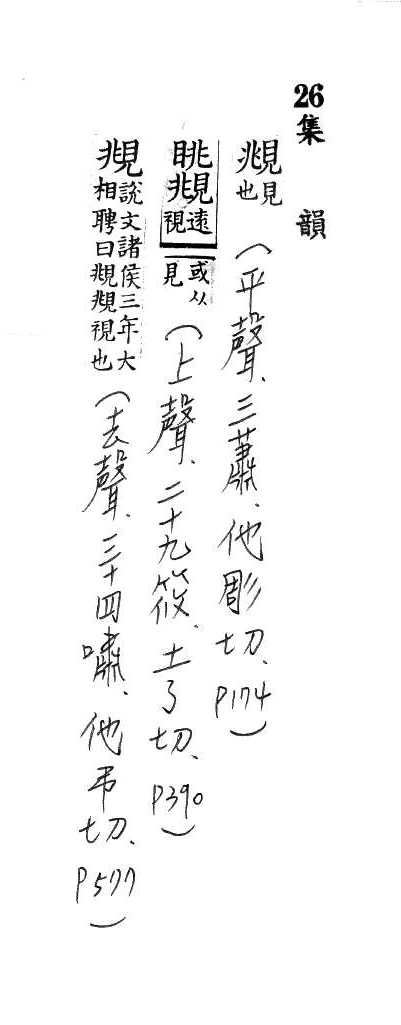 26集韻
覜見也（平聲、三蕭、他彫切、P174）
眺覜遠視或从見（上聲、二十九筱、土了切、P390）
覜說文諸侯三年大相聘曰覜覜視也（去聲、三十四嘯、他弔切、P577）